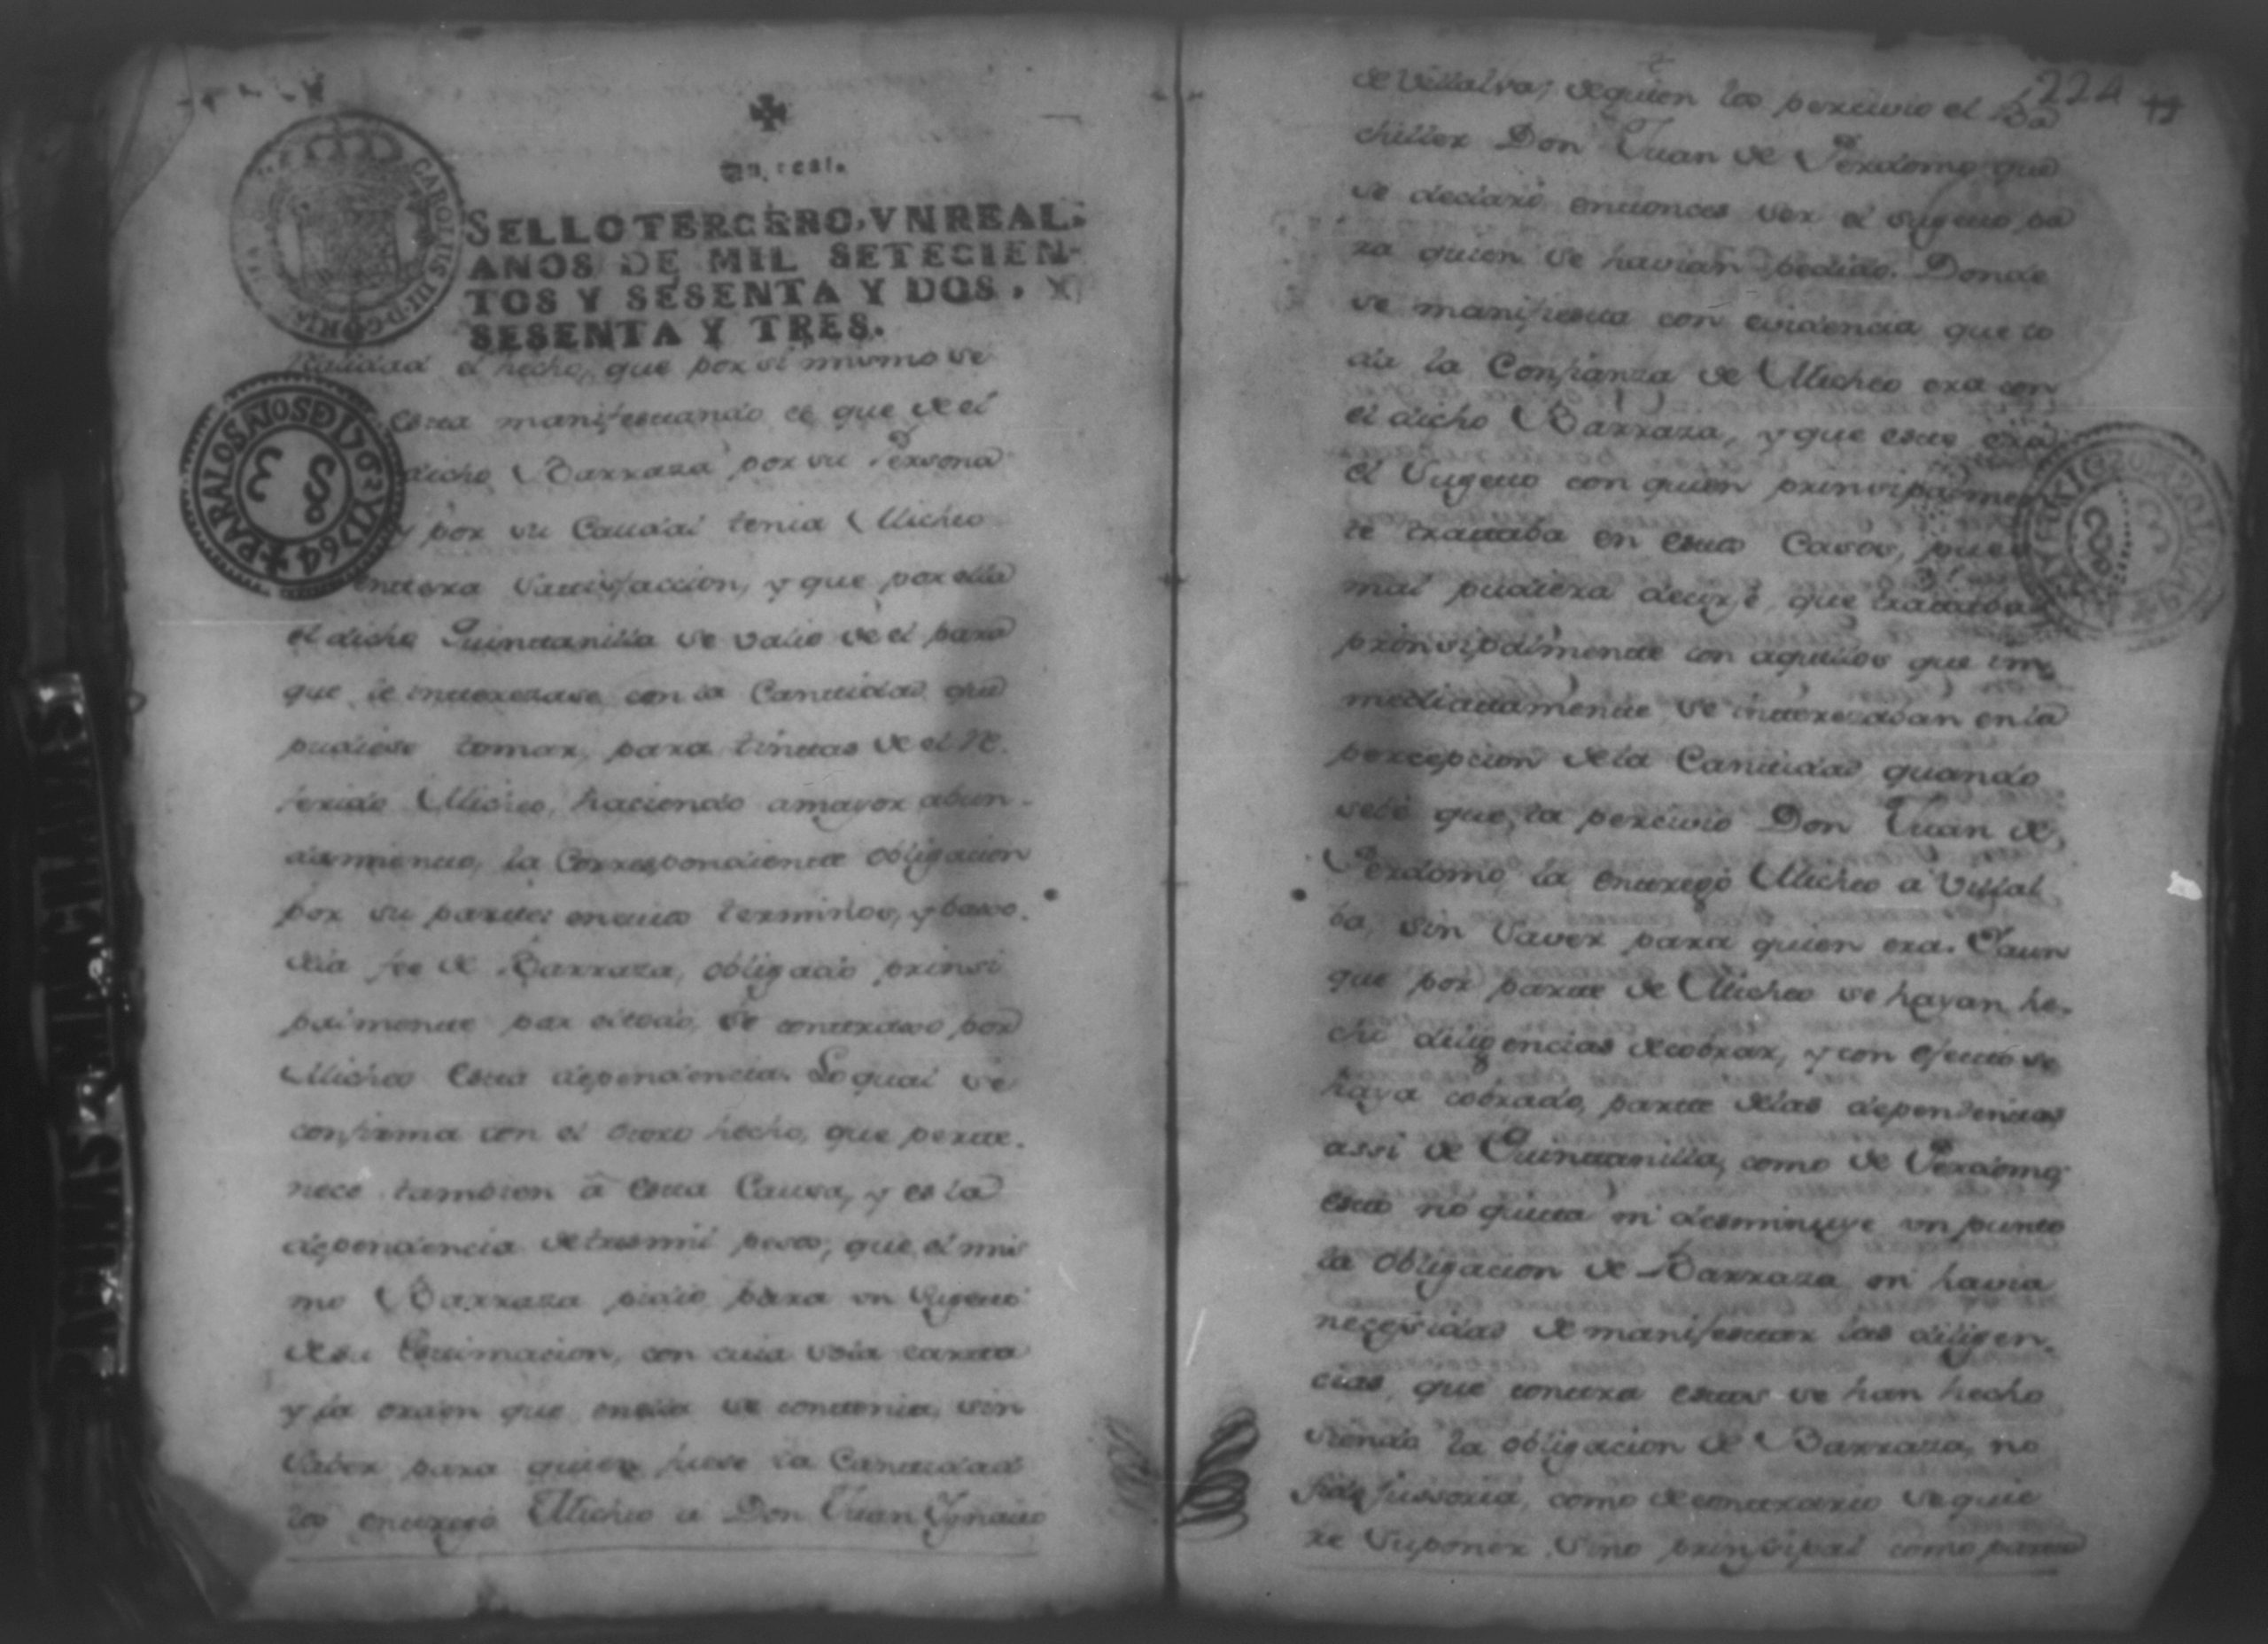 Un real.
SELLO TERCERO, VN REAL,
AÑOS DE MIL SETECIEN-
TOS Y SESENTA Y DOS, Y
SESENTA Y TRES.
CAROLUS III D G
PARA LOS AÑOS D 1763 Y 1764
el hecho, que por si mismo se
esta manifestando es que de el
dicho Barraza por su Persona
y por su Caudal tenia Micheo
entera satisfaccion, y que por ella
el dicho Quintanilla se valio de el para
que le interezase con la Cantidad que
pudiese tomar para tintas de el Re-
ferido Micheo, haciendo a mayor abun-
damiento, la Correspondiente obligacion
por su parte: en cuios terminos, y baxo
dela fee de Barraza, obligado prinsi
palmente por si solo, se contraxo por
Micheo esta dependencia. Lo qual se
confirma con el otro hecho, que perte-
nece tambien â esta Causa, y es la
dependencia de tres mil pesos, que el mis
mo Barraza pidio para un sugeto
de su Estimacion, con cuia sola carta
y la orden que en ella se contenia, sin
saber para quien fuese la Cantidad
los entregó Micheo a Don Juan Ygnacio
224
de Villalva; de quien los percivio el Ba
chiller Don Juan de Perdomo que
se declaró entonces ser el sugeto pa
ra quien se havian pedido. Donde
se manifiesta con evidencia que to
da la Confianza de Micheo era con
el dicho Barraza, y que este era
el sugeto con quien prinsipalmen
te trataba en estos Casos, pues
mal pudiera decirse, que trataba
prinsipalmente con aquellos que im
mediatamente se interezaban en la
percepcion dela Cantidad, quando
sobre que, la percivio Don Juan de
Perdomo, la entregó Micheo a Villal
ba, sin saver para quien era. Y aun
que por parte de Micheo se hayan he-
cho diligencias de cobrar, y con efecto se
haya cobrado, parte delas dependencias
assi de Quintanilla, como de Perdomo,
esto no quita ni desminuye un punto
la obligacion de Barraza, ni havia
necesidad de manifestar las diligen-
cias, que contra estos se han hecho
siendo la obligacion de Barraza, no
fide jussoria, como de contrario se quie
re suponer, sino prinsipal como parte